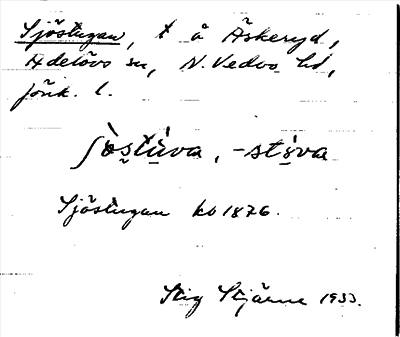 Sjöstugan, t å Äskeryd,
Adelövs sn, N. Vedbo hd,
Jönk. l.
ʃòstùva, -stùva
Sjöstugan kb 1876.
Stig Stjärne 1933.